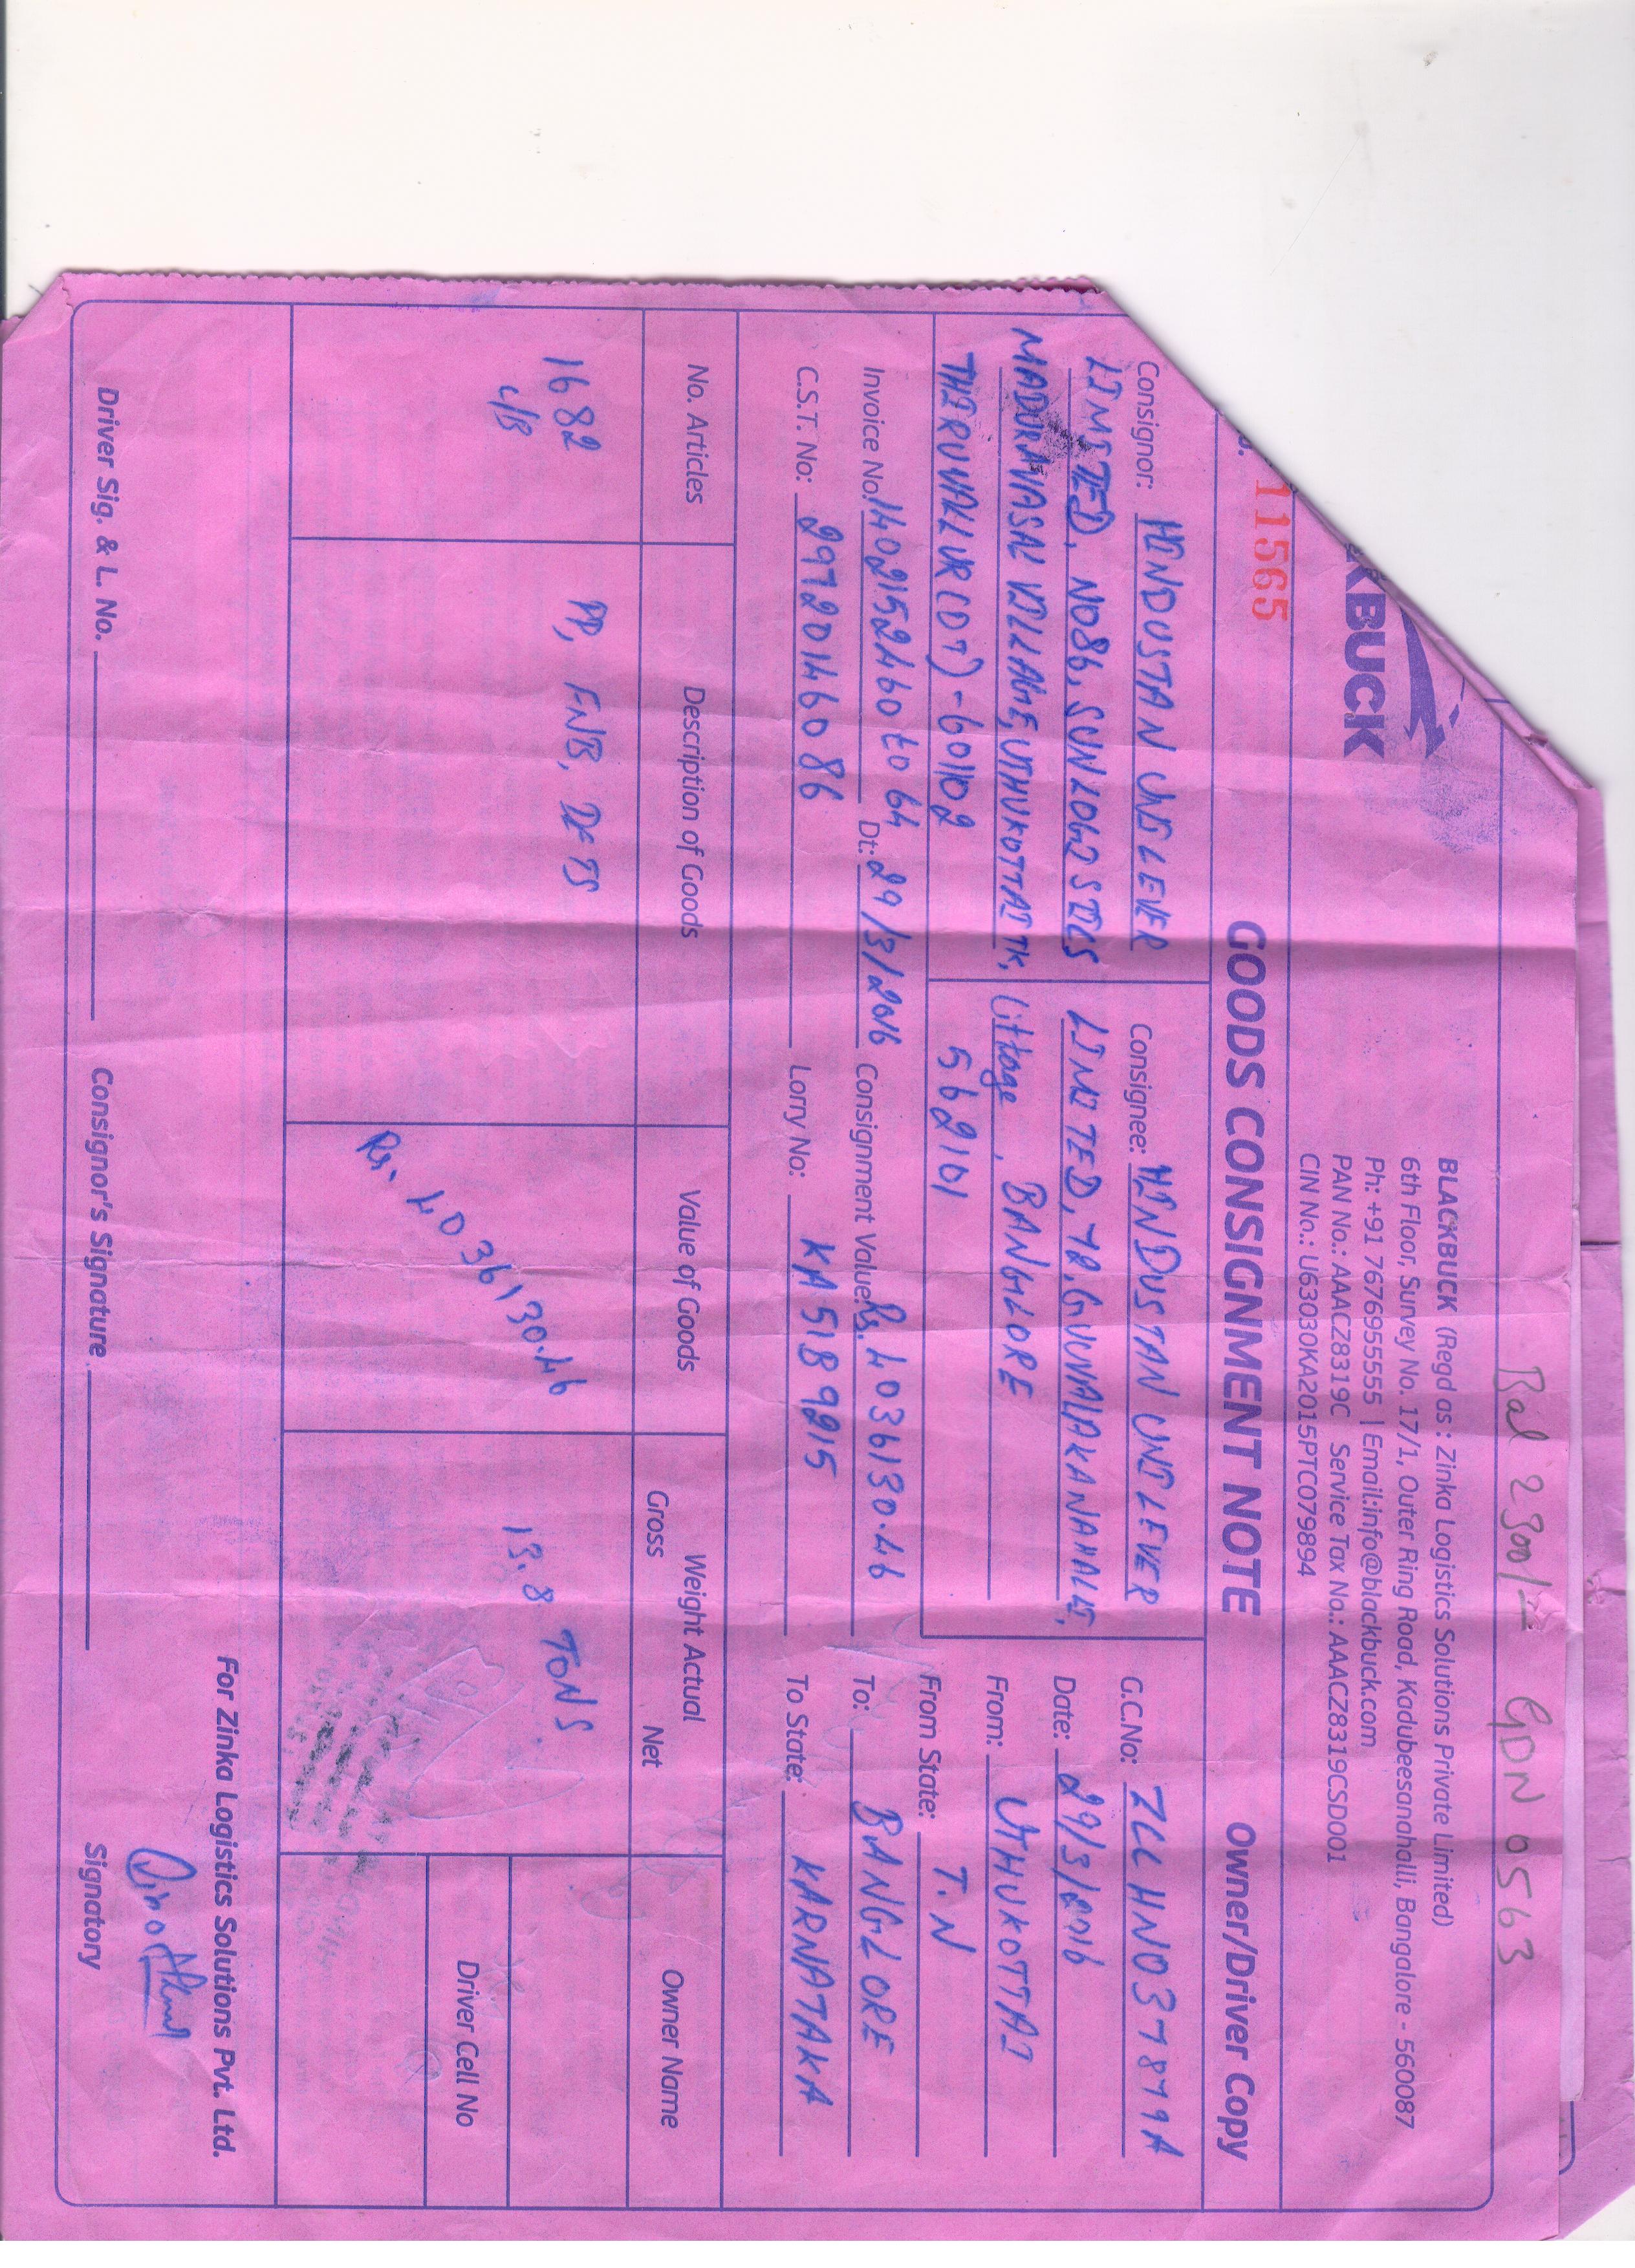 Bal 2300/= GDN 0563
KBUCK
BLACKBUCK (Regd as : Zinka Logistics Solutions Private Limited)
6th Floor, Survey No. 17/1, Outer Ring Road, Kadubeesanahalli, Bangalore - 560087
Ph: +91 7676955555 | Email:info@blackbuck.com
PAN No.: AAACZ8319C Service Tax No.: AAACZ8319CSD001
CIN No.: U63030KA2015PTC079894
11565
GOODS CONSIGNMENT NOTE
Owner/Driver Copy
Consignor: HINDUSTAN UNILEVER
LIMITED, NO86, SUNLOGISTICS
MADURAVASAL VILLAGE, UTHUKOTTAI TK,
THIRUVALLUR (DT) - 601102
Consignee: HINDUSTAN UNILEVER
LIMITED, 78,
, BANGLORE
562101
G.C.No:
Date: 29/3/2016
From: UTHUKOTTAI
From State: T.N
To: BANGLORE
To State: KARNATAKA
Invoice No. 1402152460 to 64 Dt: 29/3/2016 Consignment Value: Rs. 4036130.46
C.S.T. No: 29720146086 Lorry No: KA 51B 9215
No. Articles Description of Goods Value of Goods Weight Actual Owner Name
Gross Net
1682 PP, FNB, DETS Rs. 4036130.46 13.8 TONS
C/B
Driver Cell No
For Zinka Logistics Solutions Pvt. Ltd.
Driver Sig. & L. No. Consignor's Signature Signatory